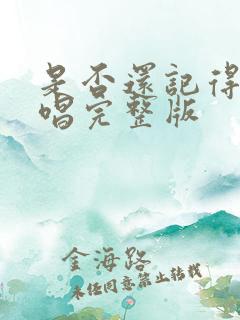 是否還記得
唱完整版
金海路
未经同意禁止转载